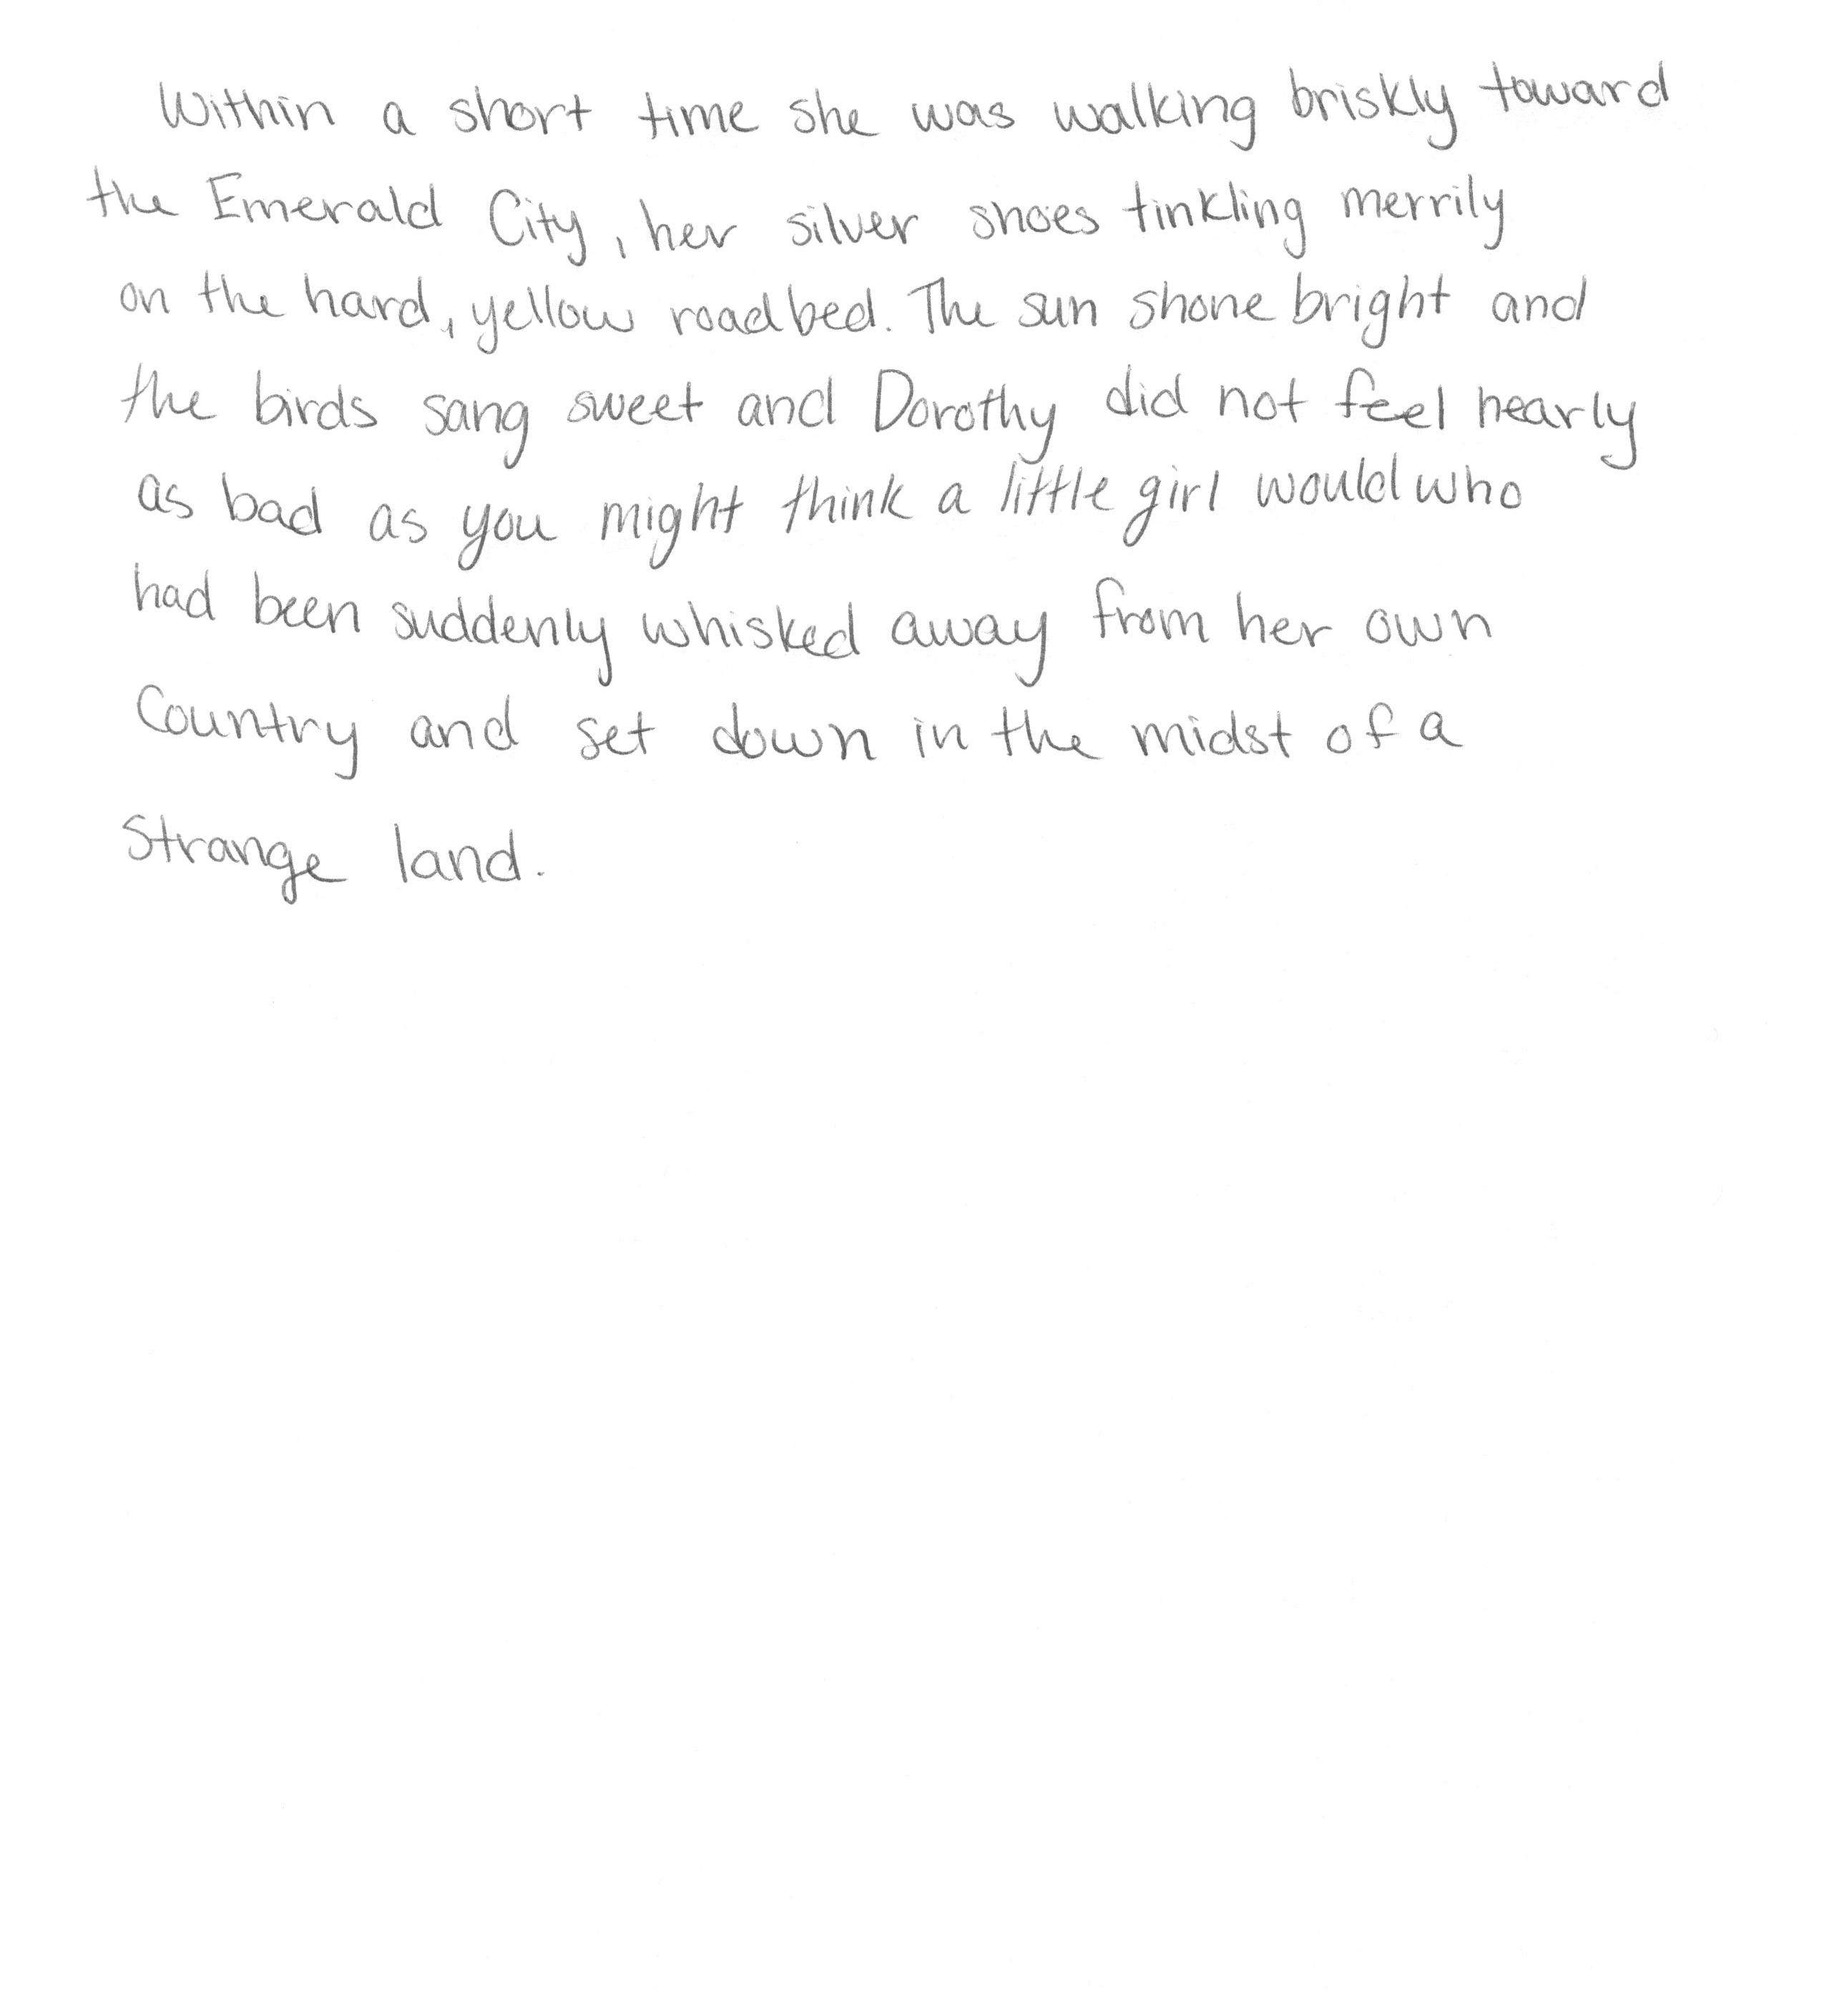 Within a short time she was walking briskly toward
the Emerald City, her silver shoes tinkling merrily
on the hard, yellow roadbed. The sun shone bright and
the birds sang sweet and Dorothy did not feel nearly
as bad as you might think a little girl would who
had been suddenly whisked away from her own
Country and set down in the midst of a
Strange land.